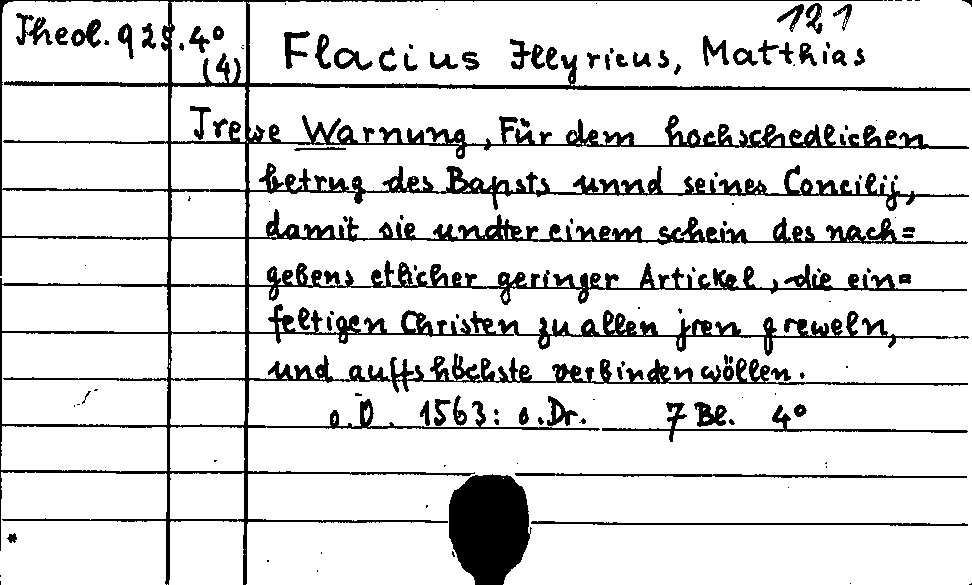 121
Theol. 925. 4° (4)
Flacius Illyricus, Matthias
Trewe Warnung, Für dem hochschedlichen
betrug des Bapsts unnd seines Concilij,
damit sie undter einem schein des nach=
gebens etlicher geringer Artickel, die ein=
feltigen Christen zu allen jren greweln,
und auffs höchste verbinden wöllen.
o.O. 1563: o.Dr. 7 Bl. 4°
*